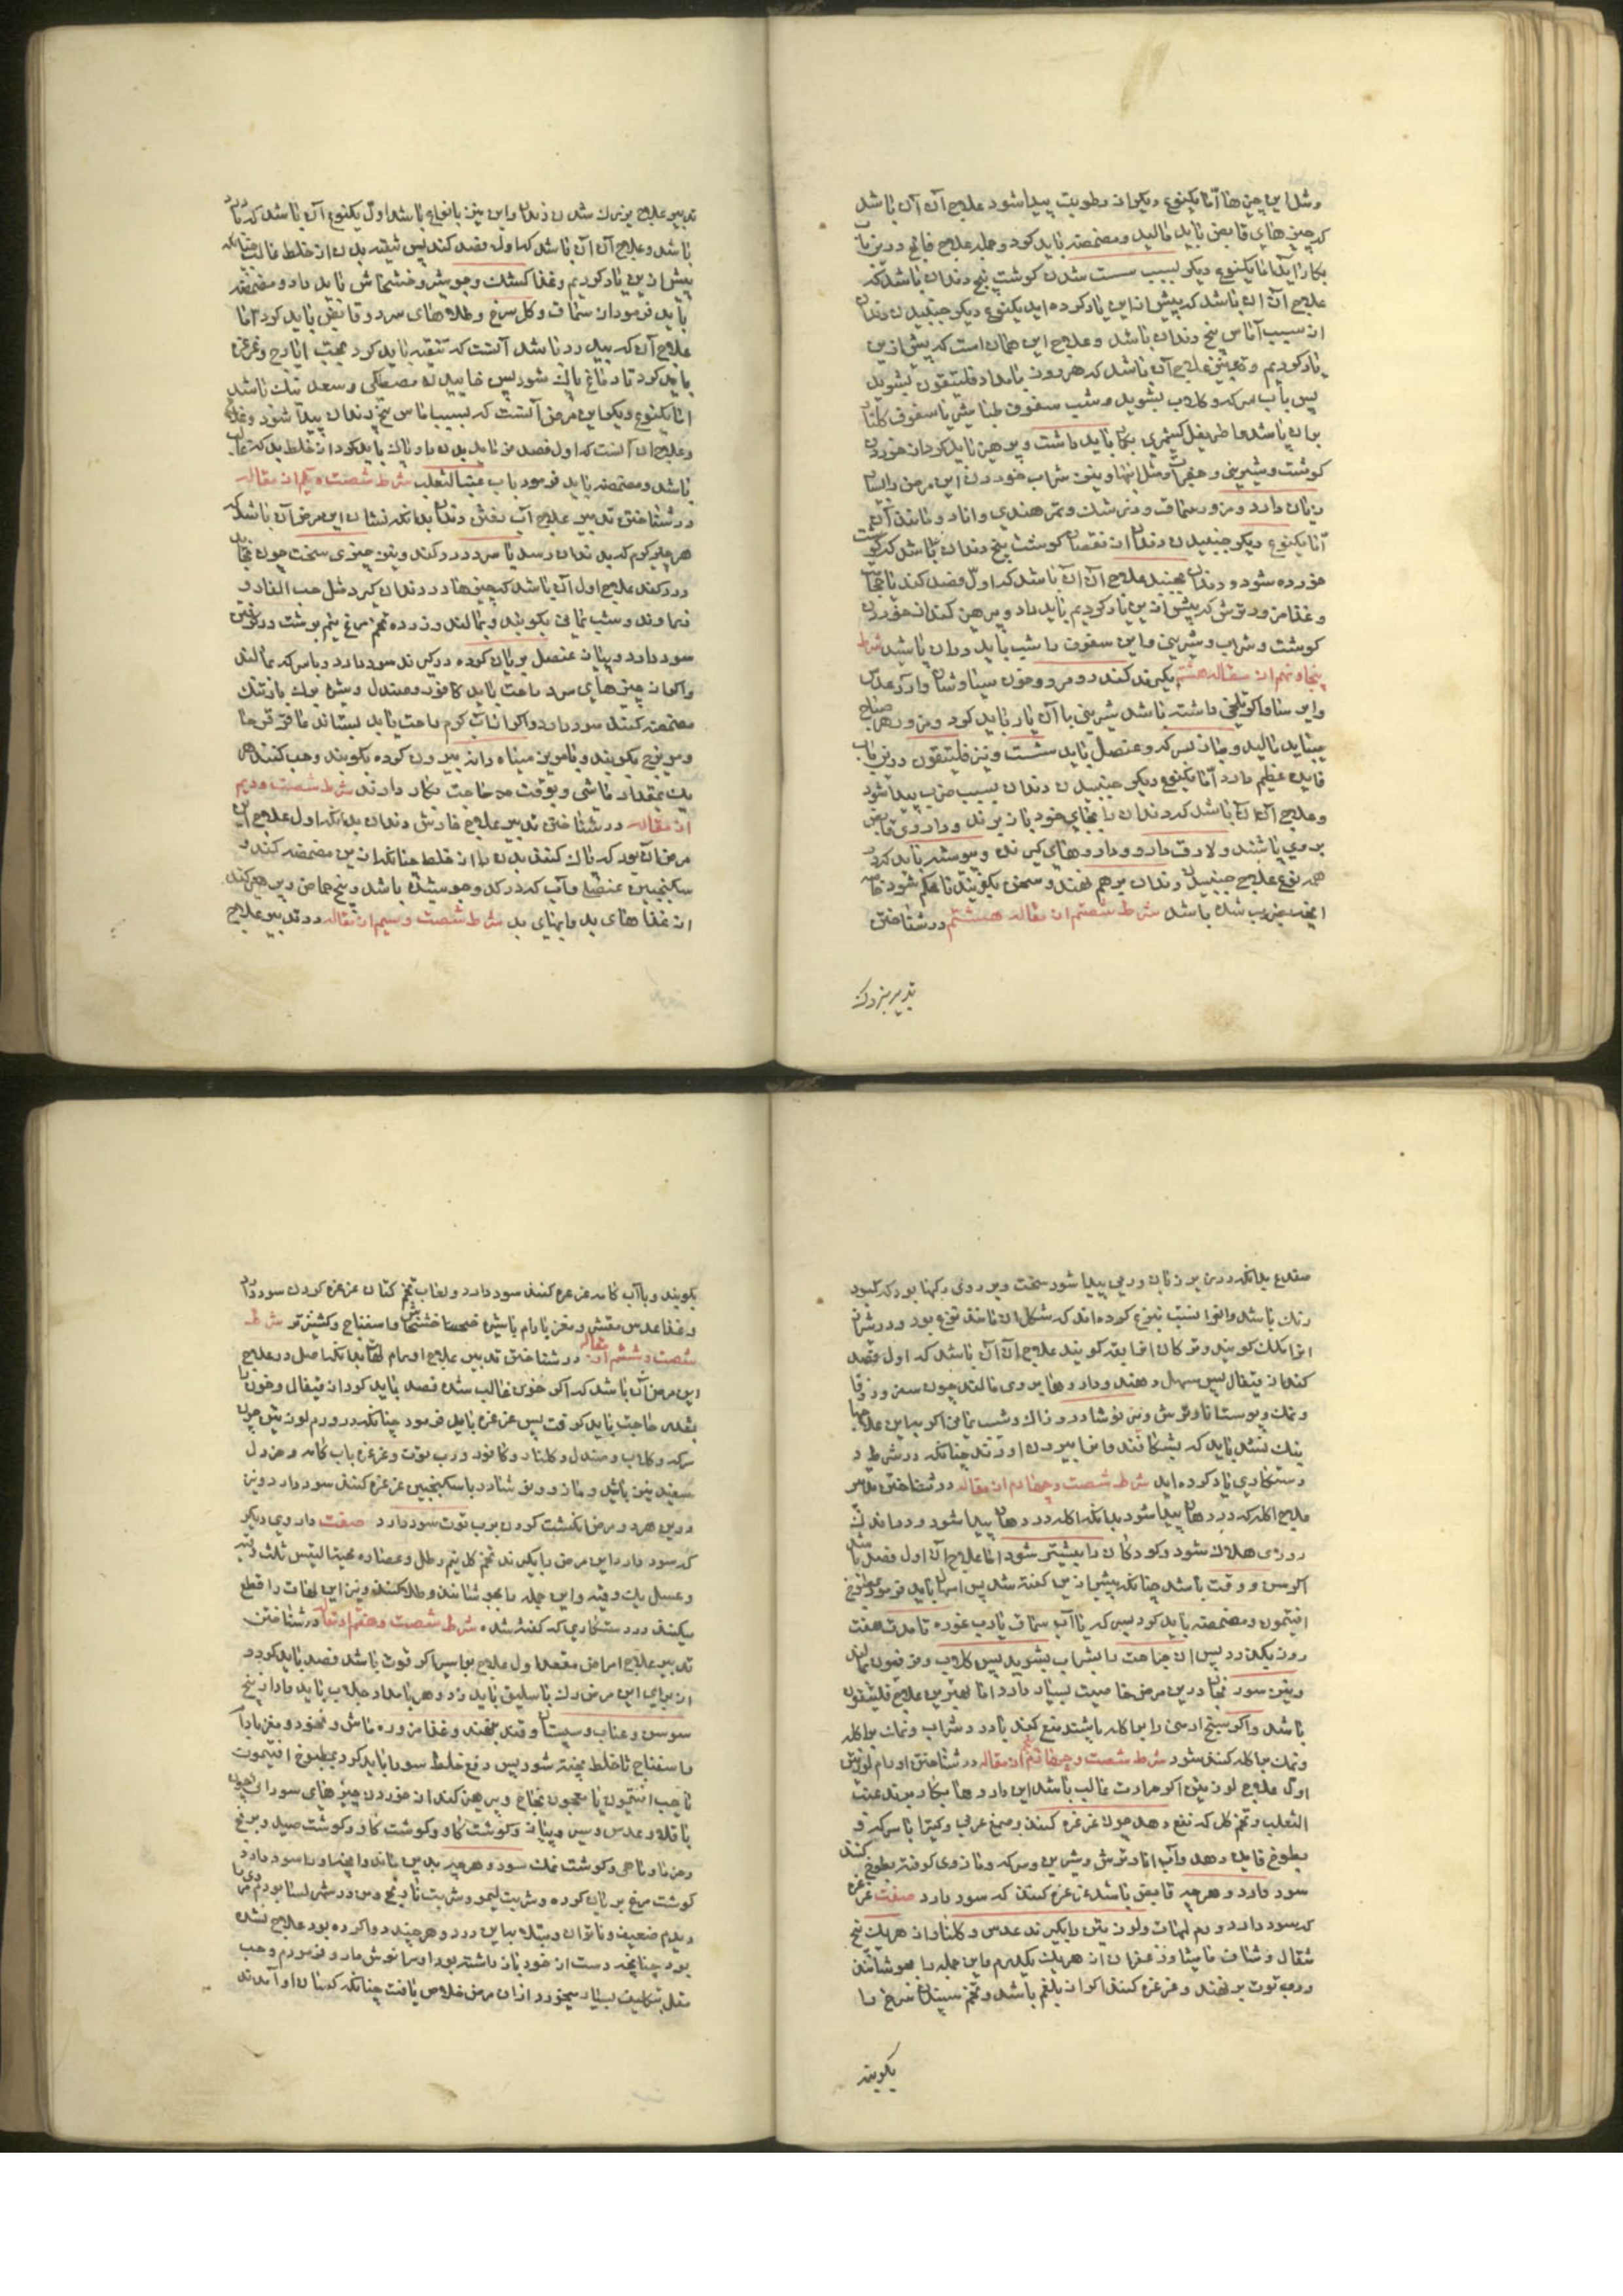 ومثل این چیزها اما یکنوع دیگر از رطوبت پیدا شود علاج آن آن باشد
که چیزهای قابض باید مالید ومضمضه باید کرد وجمله علاج فالج درین باب
بکار آید اما یکنوع دیگر بسبب سست شدن گوشت بیخ دندان باشد که
علاج آن آن باشد که پیش ازین یاد کرده ایم یکنوع دیگر جنبیدن دندان
از سبب آماس بیخ دندان باشد وعلاج این همان است که پیش ازین
یاد کردیم و علاج آن باشد که هر روز بامداد فلتیقون بشوید
پس بآب سرکه وگلاب بشوید وشب سفوف طباشیر یا سفوف گلنار
بران باشد واطریفل کشنیزی بکار باید داشت وپرهیز باید کرد از خوردن
گوشت وشیرینی و ومثل اینها ونیز شراب خوردن این مرض را بسیار
زیان دارد ومزوره سماق وزرشک وتمر هندی وانار ومانند آن
اما یکنوع دیگر جنبیدن دندان از نقصان گوشت بیخ دندان باشد که گوشت
خورده شود ودندان بجنبد علاج آن آن باشد که اول فصد کند یا حجامت
وغذا مزوره ترش که پیش ازین یاد کردیم باید داد وپرهیز کند از خوردن
گوشت وشراب وشیرینی واین سفوف را شب باید بران پاشید شرط
پنجاه نهم از مقاله هشتم بگیرند کندر ومر وخون سیاوشان وآرد عدس
واین سنا واگر تلخی داشته باشد شیرینی با آن یار باید کرد ومزوره هر صباح
بباید مالید وبیاز بسرکه وعنصل باید شست ونیز فلتیقون درین باب
فایده عظیم دارد اما یکنوع دیگر جنبیدن دندان بسبب ضرب پیدا شود
وعلاج آن آن باشد که دندان را بجای خود باز برند وداروی قابض
بروی پاشند ولازق دارو وداروهای گیرنده وپیوسته باید کرد
همه نوع علاج جنبیدن دندان برهم نهند وسعی بگویند تا محکم شود خاصه
آنچه بضرب شده باشد شرط شصتم از مقاله هشتم در شناختن
تدبیر بزرک
تدبیر علاج بزرک شدن دندان واین نیز بانواع باشد اول یکنوع آن باشد که با درد
باشد وعلاج آن آن باشد که اول فصد کند پس تنقیه بدن از خلط غالب چنانکه
پیش ازین یاد کردیم وغذا کشک وجو شیر وخشخاش باید داد ومضمضه
باید فرمود از سماق وگل سرخ وطلاهای سرد وقابض باید کرد اما
علاج آن که بی درد باشد آنست که تنقیه باید کرد بحب ایارج وغرغره
باید کرد تا دماغ پاک شود پس خاییدن مصطکی وسعد نیک باشد
اما یکنوع دیگر این مرض آنست که بسبب آماس بیخ دندان پیدا شود وغذا
وعلاج آن آنست که اول فصد فرماید بدن را پاک باید کرد از خلط بد که غالب
باشد ومضمضه باید فرمود بآب عنب الثعلب شرط شصت ویکم از مقاله
در شناختن تدبیر علاج آب رفتن دندان بدانکه نشان این مرض آن باشد که
هر چیز گرم که بدندان رسد یا سرد درد کند ونیز چیزی سخت چون بخاید
درد کند علاج اول آن باشد که چیزها در دندان گیرد مثل حب الغار و
زراوند وشب یمانی بگویند وبمالند وزرده تخم مرغ نیم برشت در گرفتن
سود دارد وپیاز عنصل بریان کرده در گیرند سود دارد وبا سرکه بمالند
واگر از چیزهای سرد راحت یابد کافور وصندل وشراب بوی بازنیک
مضمضه کنند سود دارد واگر از آب گرم راحت یابد بستاند عاقرقرحا
ومویزج بگویند وبا مویز سیاه دانه بیرون کرده بگویند وحب کنند هر
یک بمقدار ماشی وبوقت حاجت بکار دارند شرط شصت ودویم
از مقاله در شناختن تدبیر علاج خارش دندان بدانکه اول علاج این
مرض آن بود که پاک کنند بدن را از خلط چنانکه ازین مضمضه کنند و
سکنجبین عنصلی وآب که در گل وجوشیده باشد وبیخ حماض وپرهیز کند
از غذاهای بد وآبهای بد شرط شصت وسیم از مقاله در تدبیر علاج
ضفدع بدانکه در زیر زبان ورمی پیدا شود سخت وبر روی رگها بود که کبود
رنگ باشد واو را نسبت بنوع کرده اند که شکل آن مانند وزغ بود ودر شیراز
انرا بکک گویند وترکان انرا بقه گویند علاج آن آن باشد که اول فصد
کند از قیفال پس مسهل دهند وداروها بروی مالند چون سعتر وزوفا
ونمک وپوست انار ترش ونیز نوشادر وزاک وشب یمانی اگر بباین علاجها
نیک نشد باید که بشکافند وانرا بیرون آورند چنانکه در شرط د
دستکاری یاد کرده ایم شرط شصت وچهارم از مقاله در شناختن تدبیر
علاج اکله که در دهان پیدا شود بدانکه اکله در دهان پیدا شود ودر اندک
روزی هلاک شود وکودکان را بیشتر شود اما علاج آن اول فصد باشد
اگر سن ووقت باشد چنانکه پیش ازین گفته شد پس اسهال باید فرمود بمطبوخ
افتیمون ومضمضه باید کرد بسرکه یا آب سماق یا رب غوره تا مدت هفت
روز بگذرد پس آن جراحت را بشراب بشوید پس گلاب وفرفیون بمالند
ونیز سورنجان درین مرض خاصیت بسیار دارد اما بهترین علاج فلتیقون
باشد واگر بیخ ارسی را بر اکله پاشند منع کند یا درد شراب ونمک بر اکله
ونمک بر اکله کنند شود شرط شصت وپنجم از مقاله در شناختن اورام لوزتین
اول علاج لوزتین اگر حرارت غالب باشد این داروها بکار برند عنب
الثعلب وتخم گل که نفع دهد چون غرغره کنند وصمغ عربی وکتیرا با سرکه و
بطبوخ فایده دهد وآب انار ترش وشیرین وسرکه ومازوی کوفته بطبوخ کنند
سود دارد وهر چه قابض باشد غرغره کنند که سود دارد صفت غرغره
که سود دارد ورم لهات ولوزتین را بگیرند عدس وگلنار از هر یک پنج
مثقال وشیاف مامیثا وزعفران از هر یک یکدرم واین جمله را بجوشانند
ورب توت برنهند وغرغره کنند اگر از بلغم باشد وتخم سپندان سرخ را
بکویند
بکویند وبا آب کامه غرغره کنند سود دارد ولعاب تخم کتان غرغره کردن سود دارد
وغذا عدس مقشر ومغز بادام با شیره خشخاش واسفناج وکشنیز تر شرط
شصت وششم از مقاله در شناختن تدبیر علاج اورام لهات بدانکه اصل در علاج
این مرض آن باشد که اگر خون غالب شده فصد باید کرد از قیفال وخون را
بقدر حاجت باید گرفت پس غرغره باید فرمود چنانکه در ورم لوزتین چون
سرکه وگلاب وصندل وگلنار وکافور ورب توت وغرغره بآب کامه وخردل
سفید نیز باشد ومازو ونوشادر با سکنجبین غرغره کنند سود دارد ونیز
درین هر دو مرض انگشت کردن برب توت سود دارد صفت داروی دیگر
که سود دارد این مرض را بگیرند تخم گل نیم رطل وعصاره لحیة التیس ثلث وقیه
وعسل یک وقیه واین جمله را بجوشانند وطلا کنند ونیز این لهات را قطع
میکنند در دستکاری که گفته شده شرط شصت وهفتم از مقاله در شناختن
تدبیر علاج امراض مقعد اول علاج بواسیر اگر قوت باشد فصد باید کرد و
از برای این مرض رک باسلیق باید زد وهر بامداد جلاب باید داد از بیخ
سوسن وعناب وسپستان وقند بنهند وغذا مزوره ماش ونخود ومغز بادام
واسفناج تا خلط پخته شود پس دفع خلط سودا باید کرد بمطبوخ افتیمون
یا حب افتیمون یا معجون نجاح وپرهیز کند از خوردن چیزهای سودایی چون
باقلا وعدس وسیر وپیاز وگوشت گاو وگوشت گاو وگوشت صید وبرنج
وخرما وماهی وگوشت نمک سود وهر چه بدین ماند وانچه او را سود دارد
گوشت مرغ بریان کرده وشربت لیمو وشربت نارنج ومن در شهر لسا بودم مردی را
دیدم ضعیف وناتوان ومبتلا بباین درد وهر چند دوا کرده بود علاج نشده
بود چنانچه دست از خود باز داشته بود او را نوش دارو فرمودم وحب
مقل بتکلیف بسیار میخورد از ان مرض خلاص یافت چنانکه کسان او آمدند